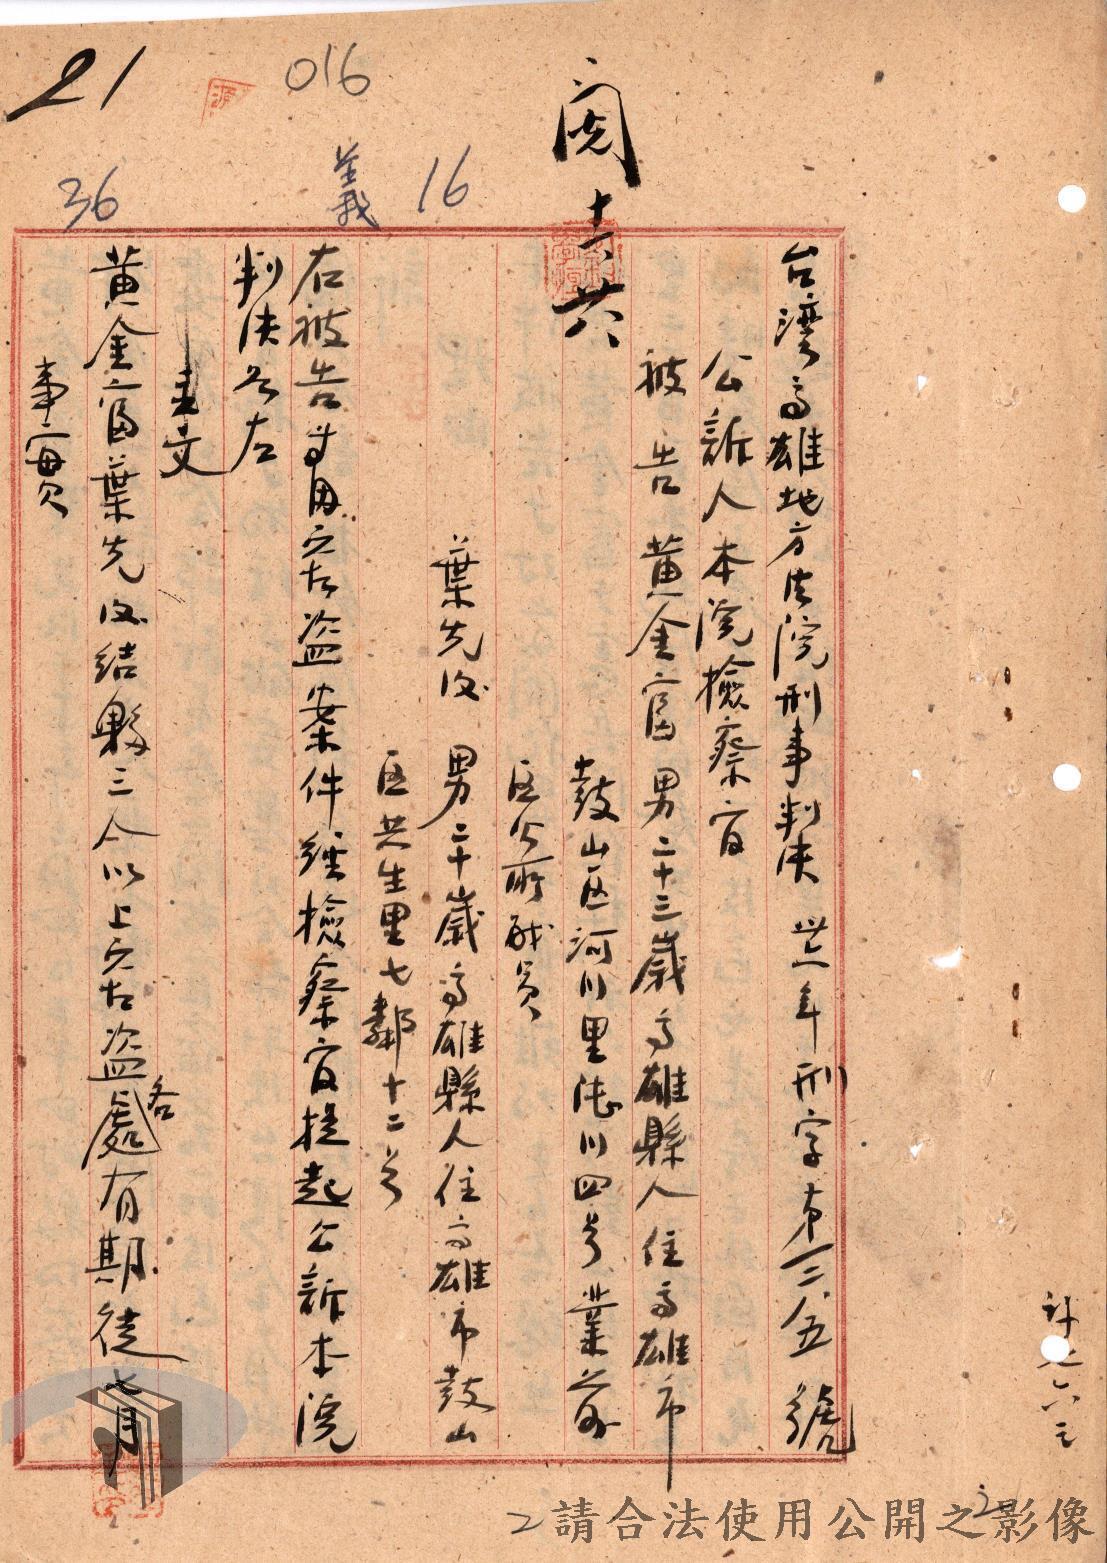 21
016
義
16
36
閱
十六
共
台灣高雄地方法院刑事判決 卅一年刑字第一二五號
公訴人本院檢察官
被告 黃金富 男二十三歲高雄縣人住高雄市
鼓山區河川里 川四号業前
區公所職員
葉先 男二十歲高雄縣人住高雄市鼓山
區共生里七鄰十二号
右被告等因竊盜案件經檢察官提起公訴本院
判決如左
主文
黃金富葉先 結夥三人以上竊盜各處有期徒七月
事實
計七六之
2
請合法使用公開之影像